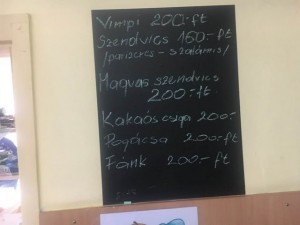 Vimpi 200.-ft
Szendvics 160.-ft
/párizsis - szalámis/
Magvas szendvics
200.-ft
Kakaós csiga 200.-
Pogácsa 200.-ft
Fánk 200.-ft